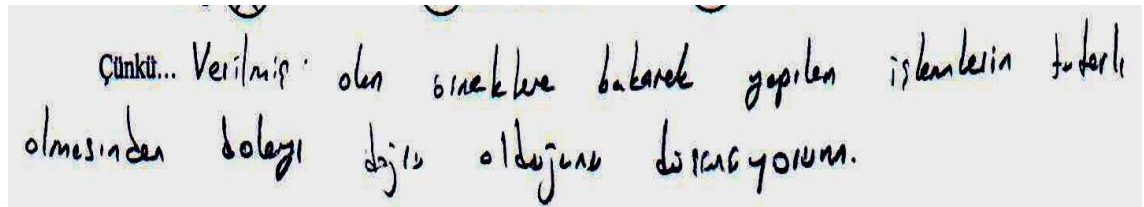 Çünkü... Verilmiş olan örneklere bakarak yapılan işlemlerin tutarlı
olmasından dolayı doğru olduğunu düşünüyorum.